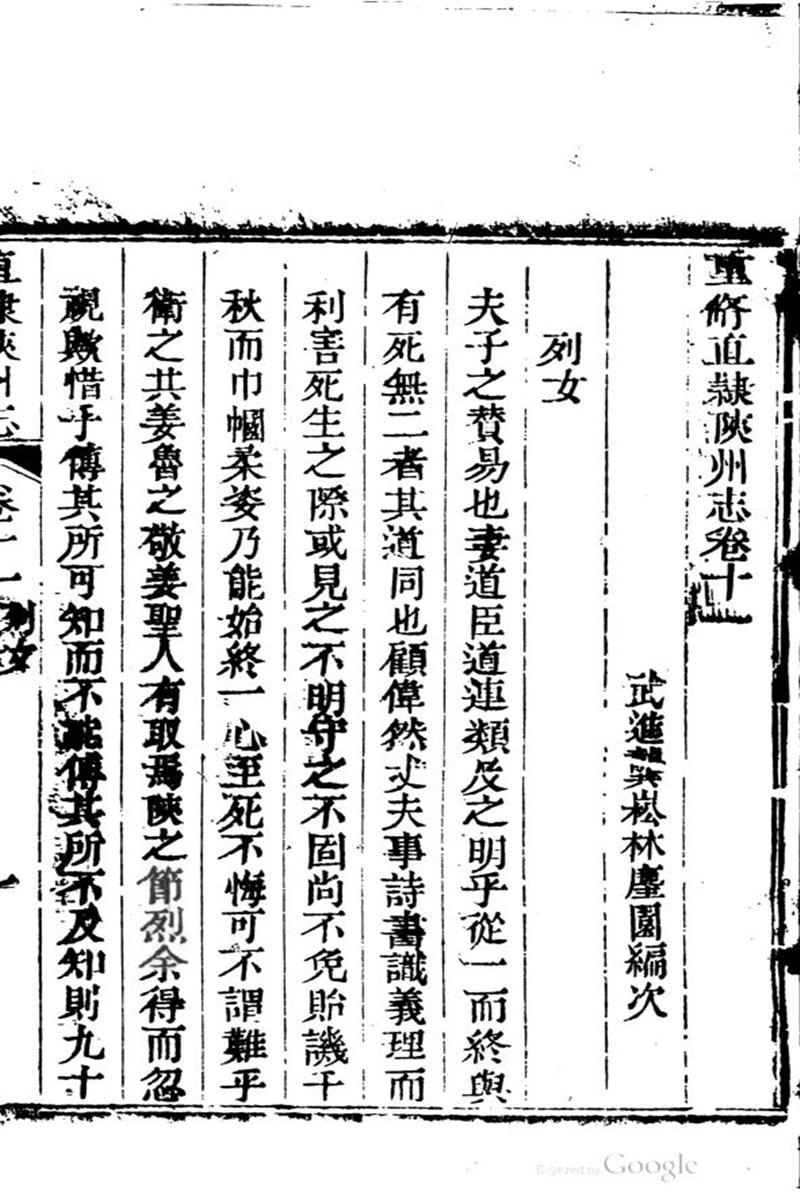 重修直隸陝州志卷十一
武進龔崧林麈園編次
列女
夫子之贊易也妻道臣道連類及之明乎從一而終與
有死無二者其道同也顧偉然丈夫事詩書識義理而
利害死生之際或見之不明守之不固尚不免貽譏千
秋而巾幗柔姿乃能始終一心至死不悔可不謂難乎
衛之共姜魯之敬姜聖人有取焉陝之節烈余得而忽
視歟惜乎傳其所可知而不能傳其所不及知則九十
直隸陝州志
卷十一
列女
一
Digitized by Google